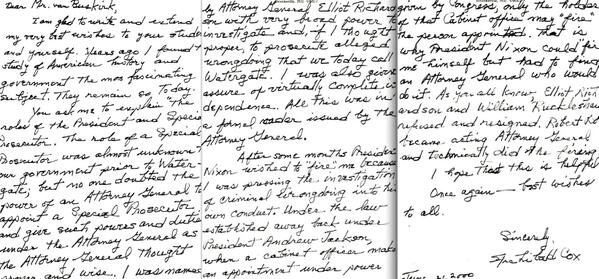 Dear Mr. van Buskirk,
I am glad to write and extend
my very best wishes to your stude
and yourself. Years ago I found
study of American history and
government the mos fascinating
subject. They remain so today.
You ask me to explain "the
roles of the President and Specia
Prosecutor. The role of a Special
Prosecutor was almost unknown
our government prior to Water-
gate; but no one doubted the
power of an Attorney General to
appoint a Special Prosecutor
and give such powers and duties
under the Attorney General as
the Attorney General thought
proper and wise. I was named
by Attorney General Elliot Richards
on with very broad power to
investigate and, if I thought
proper, to prosecute alleged
wrongdoing that we today call
Watergate. I was also given
assurance of virtually complete in
dependence. All this was in
a formal order issued by the
Attorney General.
After some months President
Nixon wished to "fire" me because
I was pressing the investigation
of criminal wrongdoing into his
own conduct. Under the law
established away back under
President Andrew Jackson,
when a cabinet officer makes
an appointment under power
given by Congress, only the holder
of that Cabinet office may "fire"
the person appointed. That is
why President Nixon could fire
me himself but had to find
an Attorney General who would
do it. As you all know, Elliot Rich
ardson and William Ruckleshaus
refused and resigned. Robert Bork
became acting Attorney General
and technically did the firing.
I hope that this is helpful
Once again — best wishes
to all.
Sincerely,
Archibald Cox
2000